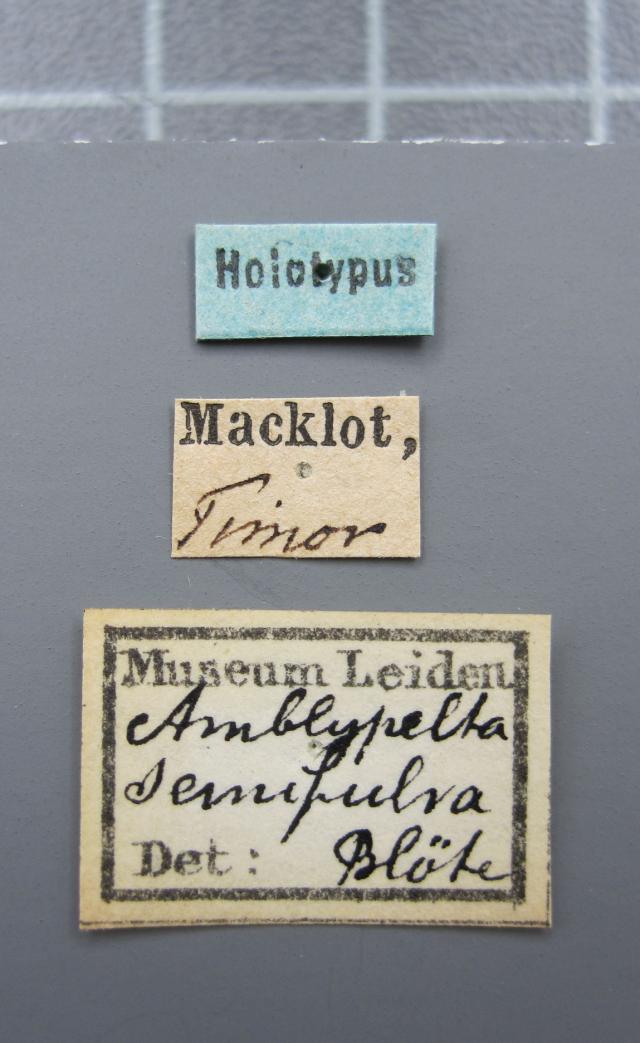 Holotypus
Macklot,
Timor
Museum Leiden
Amblypelta
semifulva
Det: Blöte